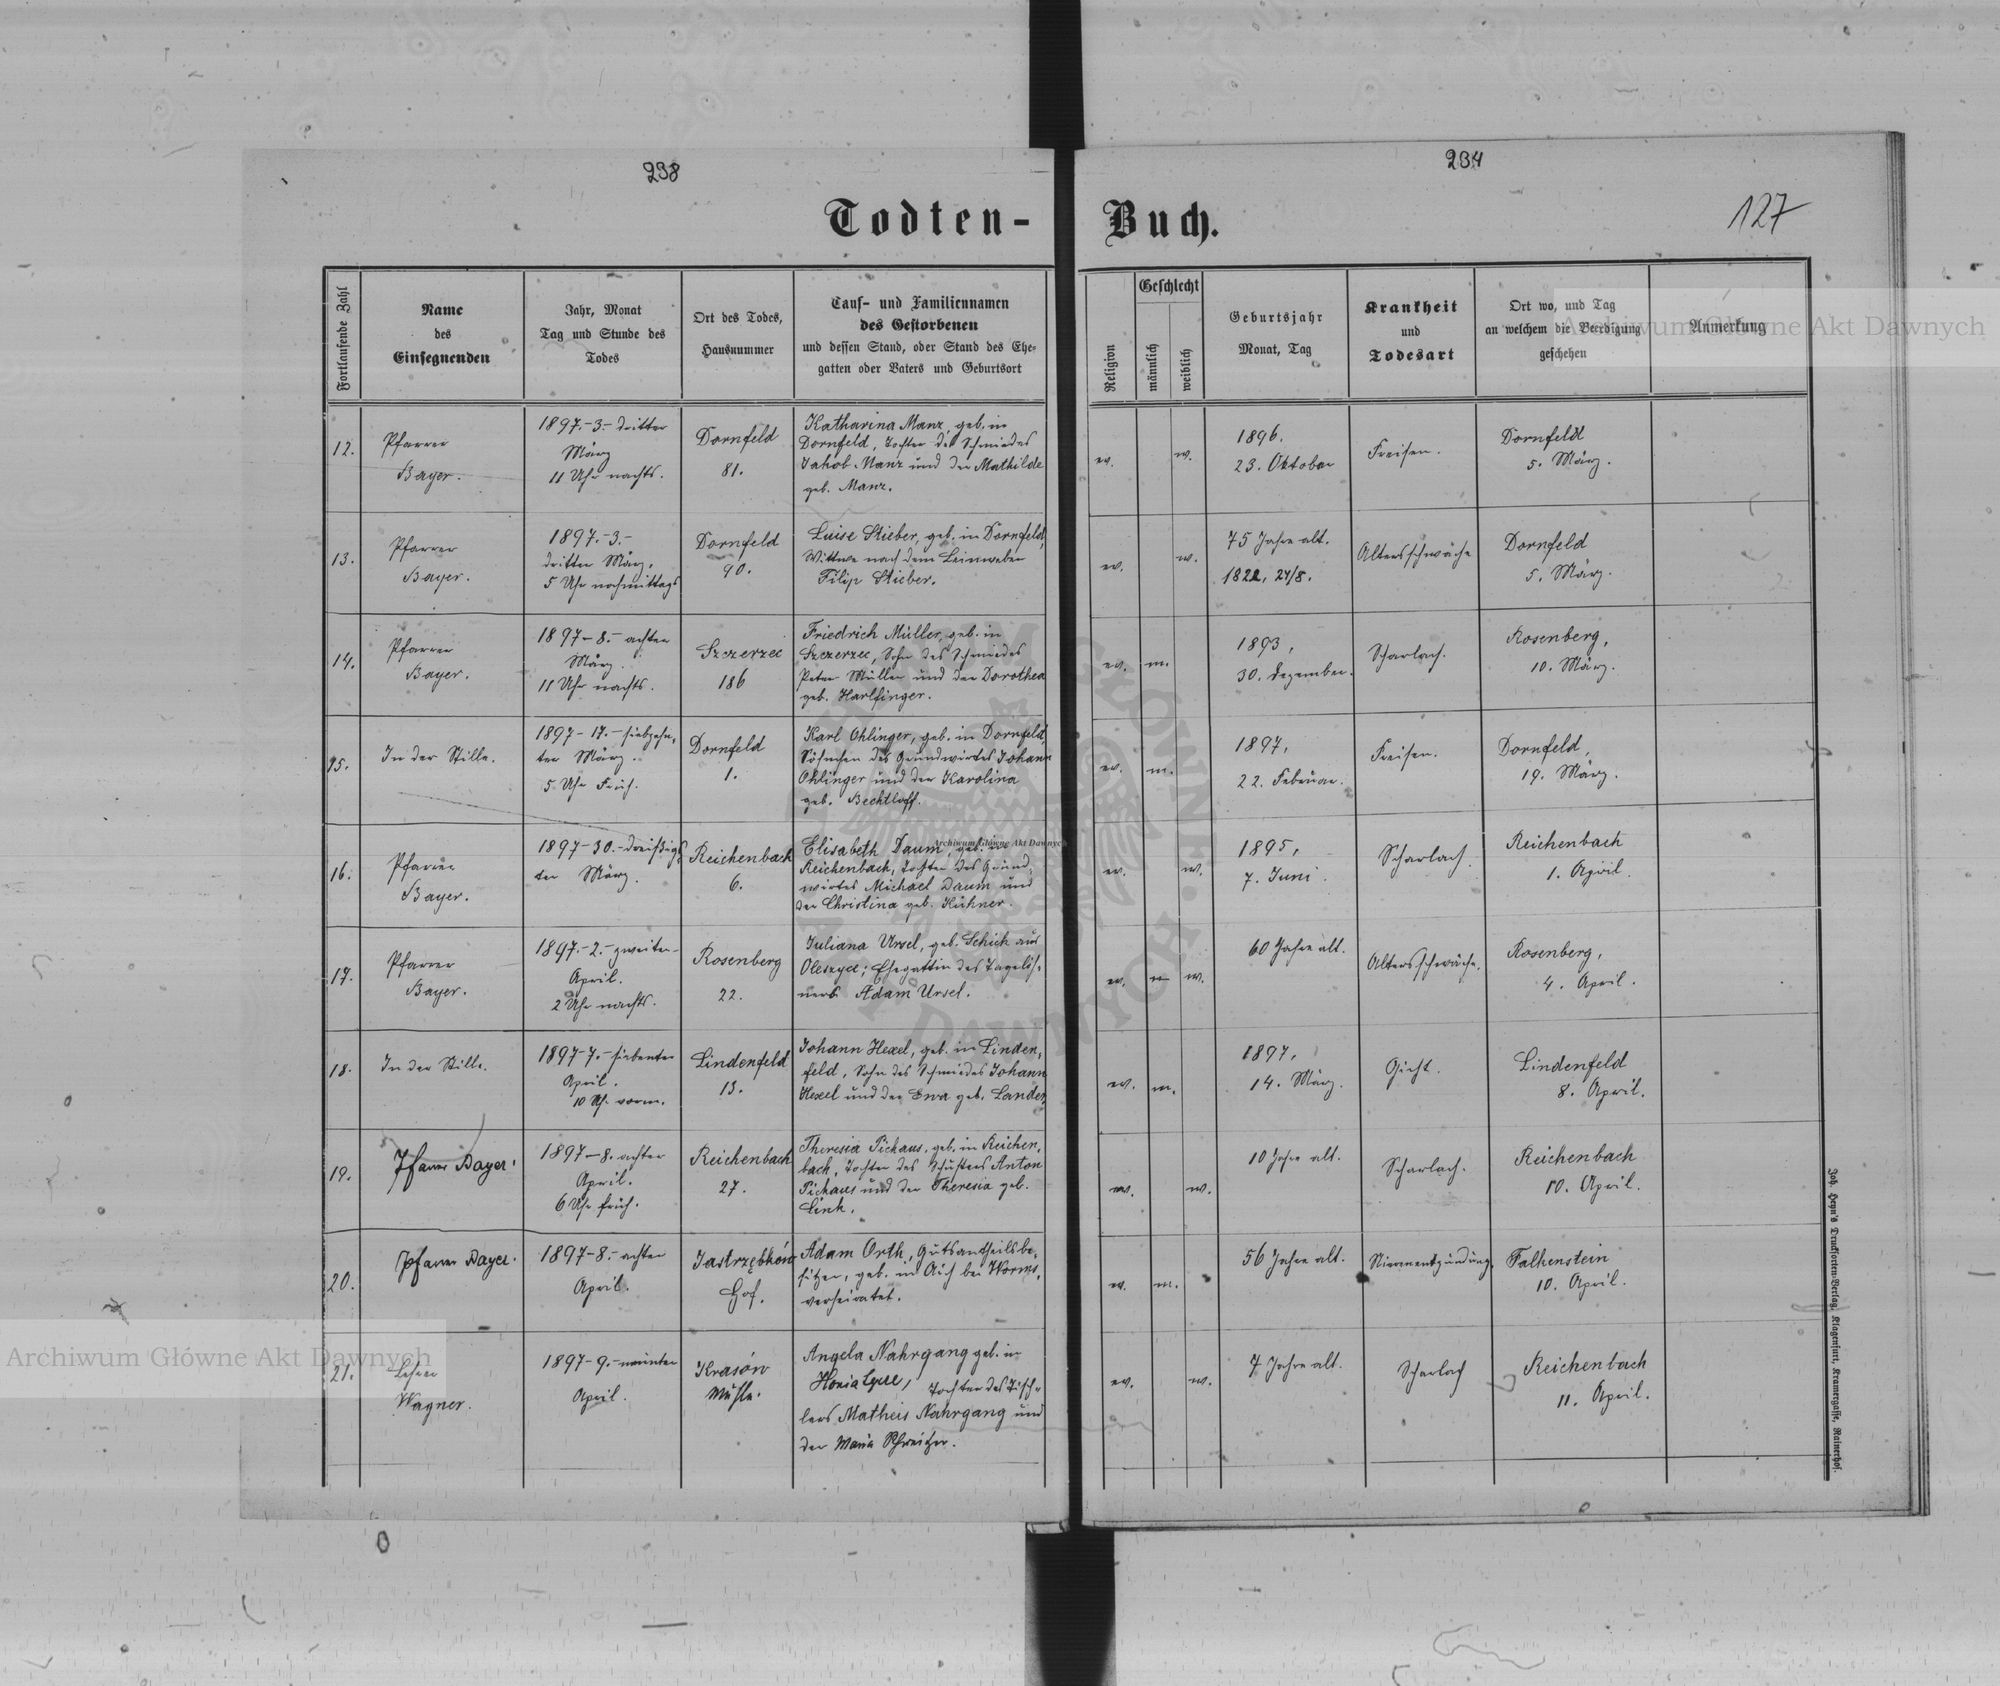 238
234
127
Todten-Buch.
Fortlaufende Zahl
Name
des
Einsegnenden
Jahr, Monat
Tag und Stunde des
Todes
Ort des Todes,
Hausnummer
Tauf- und Familiennamen
des Gestorbenen
und dessen Stand, oder Stand des Ehe-
gatten oder Vaters und Geburtsort
Religion
Geschlecht
männlich
weiblich
Geburtsjahr
Monat, Tag
Krankheit
und
Todesart
Ort wo, und Tag
an welchem die Beerdigung
geschehen
Anmerkung
12.
Pfarrer
Bayer.
1897.-3.- dritter
März
11 Uhr nachts.
Dornfeld
81.
Katharina Manz, geb. in
Dornfeld, Tochter des Schmiedes
Jakob Manz und der Mathilde
geb. Manz.
ev.
w.
1896.
23. Oktober
Freisen.
Dornfeld
5. März.
13.
Pfarrer
Bayer.
1897.-3.-
dritter März,
5 Uhr nachmittags
Dornfeld
90.
Luise Stieber, geb. in Dornfeld,
Wittwe nach dem Leinweber
Filip Stieber.
ev.
w.
75 Jahre alt.
1822, 24/8.
Altersschwäche
Dornfeld
5. März.
14.
Pfarrer
Bayer.
1897-8.- achter
März.
11 Uhr nachts.
Szczerzec
186
Friedrich Müller, geb. in
Szczerzec, Sohn des Schmiedes
Peter Müller und der Dorothea
geb. Harlfinger.
ev.
m.
1893,
30. Dezember.
Scharlach.
Rosenberg,
10. März.
15.
In der Stille.
1897-17.- siebzehn-
ter März.
5 Uhr Früh.
Dornfeld
1.
Karl Ohlinger, geb. in Dornfeld,
Söhnchen des Grundwirtes Johann
Ohlinger und der Karolina
geb. Bechtloff.
ev.
m.
1897,
22. Februar.
Freisen.
Dornfeld,
19. März.
16.
Pfarrer
Bayer.
1897-30.- dreißigs
ter März.
Reichenbach
6.
Elisabeth Daum, geb. in
Reichenbach, Tochter des Grund-
wirtes Michael Daum und
der Christina geb. Hühner.
ev.
w.
1895,
7. Juni.
Scharlach.
Reichenbach
1. April.
17.
Pfarrer
Bayer.
1897.-2.- zweiter-
April.
2 Uhr nachts.
Rosenberg
22.
Juliana Ursel, geb. Schick aus
Oleszyce; Ehegattin des Tagelöh-
ners Adam Ursel.
ev.
w.
60 Jahre alt.
Altersschwäche.
Rosenberg,
4. April.
18.
In der Stille.
1897-7.- siebenter
April.
10 Uh. vorm.
Lindenfeld
13.
Johann Hexel, geb. in Linden-
feld, Sohn des Schmiedes Johann
Hexel und der Ewa geb. Lander.
ev.
m.
1897,
14. März.
Gicht.
Lindenfeld
8. April.
19.
Pfarrer Bayer.
1897-8. achter
April.
6 Uhr früh.
Reichenbach
27.
Theresia Pickaus, geb. in Reichen-
bach, Tochter des Schusters Anton
Pickaus und der Theresia geb.
Link.
ev.
w.
10 Jahre alt.
Scharlach.
Reichenbach
10. April.
20.
Pfarrer Bayer.
1897-8.- achter
April.
Jastrzębków
Hof.
Adam Orth, Gutsantheilsbe-
sitzer, geb. in Aich bei Worms,
verheiratet.
ev.
m.
56 Jahre alt.
Nierenentzündung.
Falkenstein
10. April.
21.
Lehrer
Wagner.
1897-9.- neunter
April.
Krasów
Mühle.
Angela Nahrgang geb. in
Tochter des Tisch-
lers Matheis Nahrgang und
der Maria Schweitzer.
ev.
w.
7 Jahre alt.
Scharlach
Reichenbach
11. April.
Joh. Heyn's Drucksorten-Verlag, Klagenfurt, Kramergasse, Rainerhof.
Archiwum Główne Akt Dawnych
Archiwum Główne Akt Dawnych
Archiwum Główne Akt Dawnych